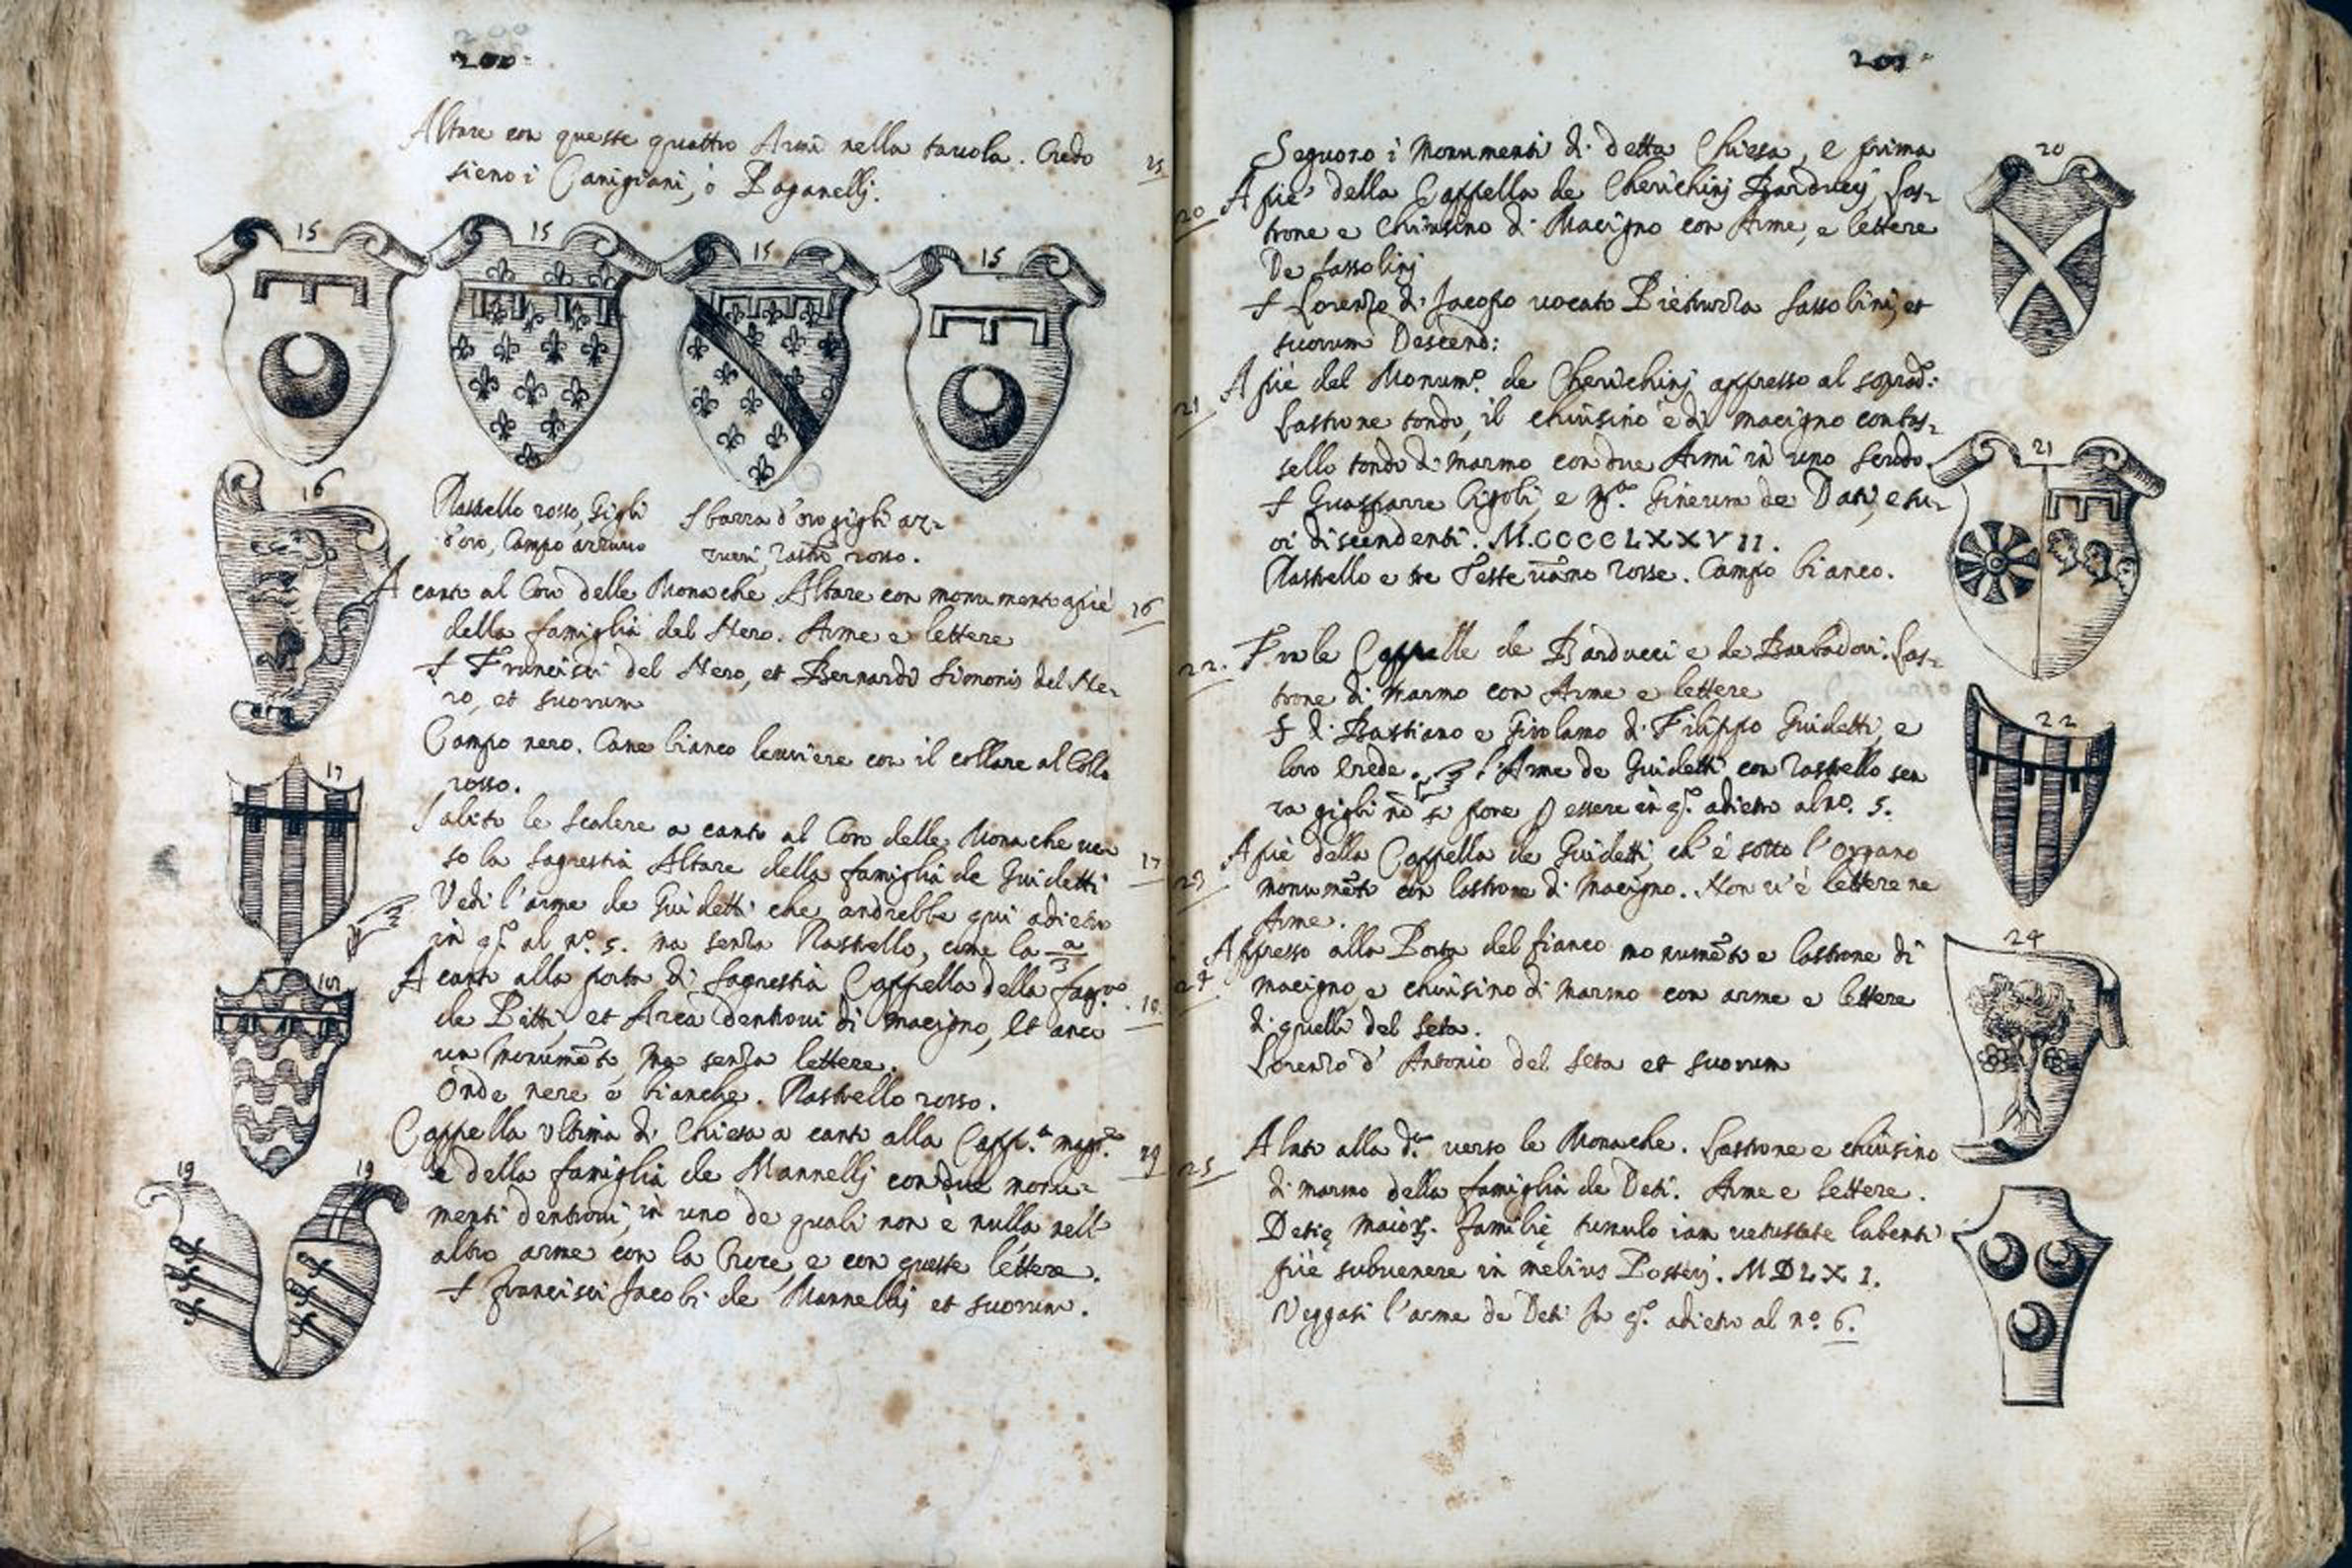 200
Altare con queste quattro Armi nella tavola. Credo
sieno i Canigiani, ò Paganelli.
15
15 15 15 15
16
Rastello rosso, Gigli
d'oro, Campo azzurro
Sbarra d'oro gigli az=
zurri, rastro rosso.
A canto al Coro delle Monache Altare con monumento apiè
16
della famiglia del Nero. Arme e lettere
† Francisci del Nero, et Bernardi Simonis del Ne=
ro, et suorum
Campo nero. Cane bianco levriere con il collare al Collo
rosso.
17
Salito le scalere a canto al Coro delle Monache ver
so la sagrestia Altare della famiglia de Guidetti
17
Vedi l'arme de Guidetti che andrebbe qui adietro
in qº. al nº. 5. ma senza Rastello, come la
18
A canto alla porta di sagrestia Cappella della
de Pitti, et Arca dentrovi di macigno, et anco
18
un monumēto, ma senza lettere.
Onde nere e bianche. Rastrello rosso.
Cappella ultima di Chiesa a canto alla Capp.ª magre
19 19
è della famiglia de Mannelli con due monu=
19
menti dentrovi, in uno de quali non è nulla nell
altro arme con la Croce, e con queste lettere.
† Francisci Jacobi de Mannellis et suorum.
201
Seguono i Monumenti di detta Chiesa, e prima
20
20 A piè della Cappella de Cherichini Barducci, las=
trone e Chiusino di Macigno con Arme, e lettere
De Sassolini
† Lorenzo di Jacopo vocato Sassolini, et
suorum Descend:
A piè del Monumº. de Cherichini appresso al soprad.:
21 lastrone tondo, il chiusino è di macigno con tas=
sello tondo di marmo con due Armi in uno scudo
21
† Guasparre Cigoli, e Mª. Ginevra de Dati, e su=
oi discendenti. M.CCCCLXXVII.
Rastrello e tre Teste vāno rosse. Campo bianco.
22. Fra le Cappelle de Barducci e de Barbadori. Las=
trone di marmo con Arme e lettere
22
S di Bastiano e Girolamo di Filippo Guidetti, e
loro erede. l'Arme de Guidetti con rastrello sen
za gigli nō si pone p essere in qº. adietro al nº. 5.
23 A piè della Cappella de Guidetti, ch'è sotto l'organo
monumēto con lastrone di macigno. Non v'è lettere ne
Arme.
24
24. Appresso alla Porta del fianco monumēto e lastrone di
macigno, e chiusino di marmo con arme e lettere
di quelli del Seta.
Lorenzo d'Antonio del Seta et suorum
25 A lato alla d.ª verso le Monache. Lastrone e chiusino
di marmo della famiglia de Deti. Arme e lettere.
Detię maiorꝫ. familię tumulo iam vetustate labenti
piè subvenere in melius Posteri. MDLXI.
Veggasi l'arme de Deti In qº. adietro al nº. 6.